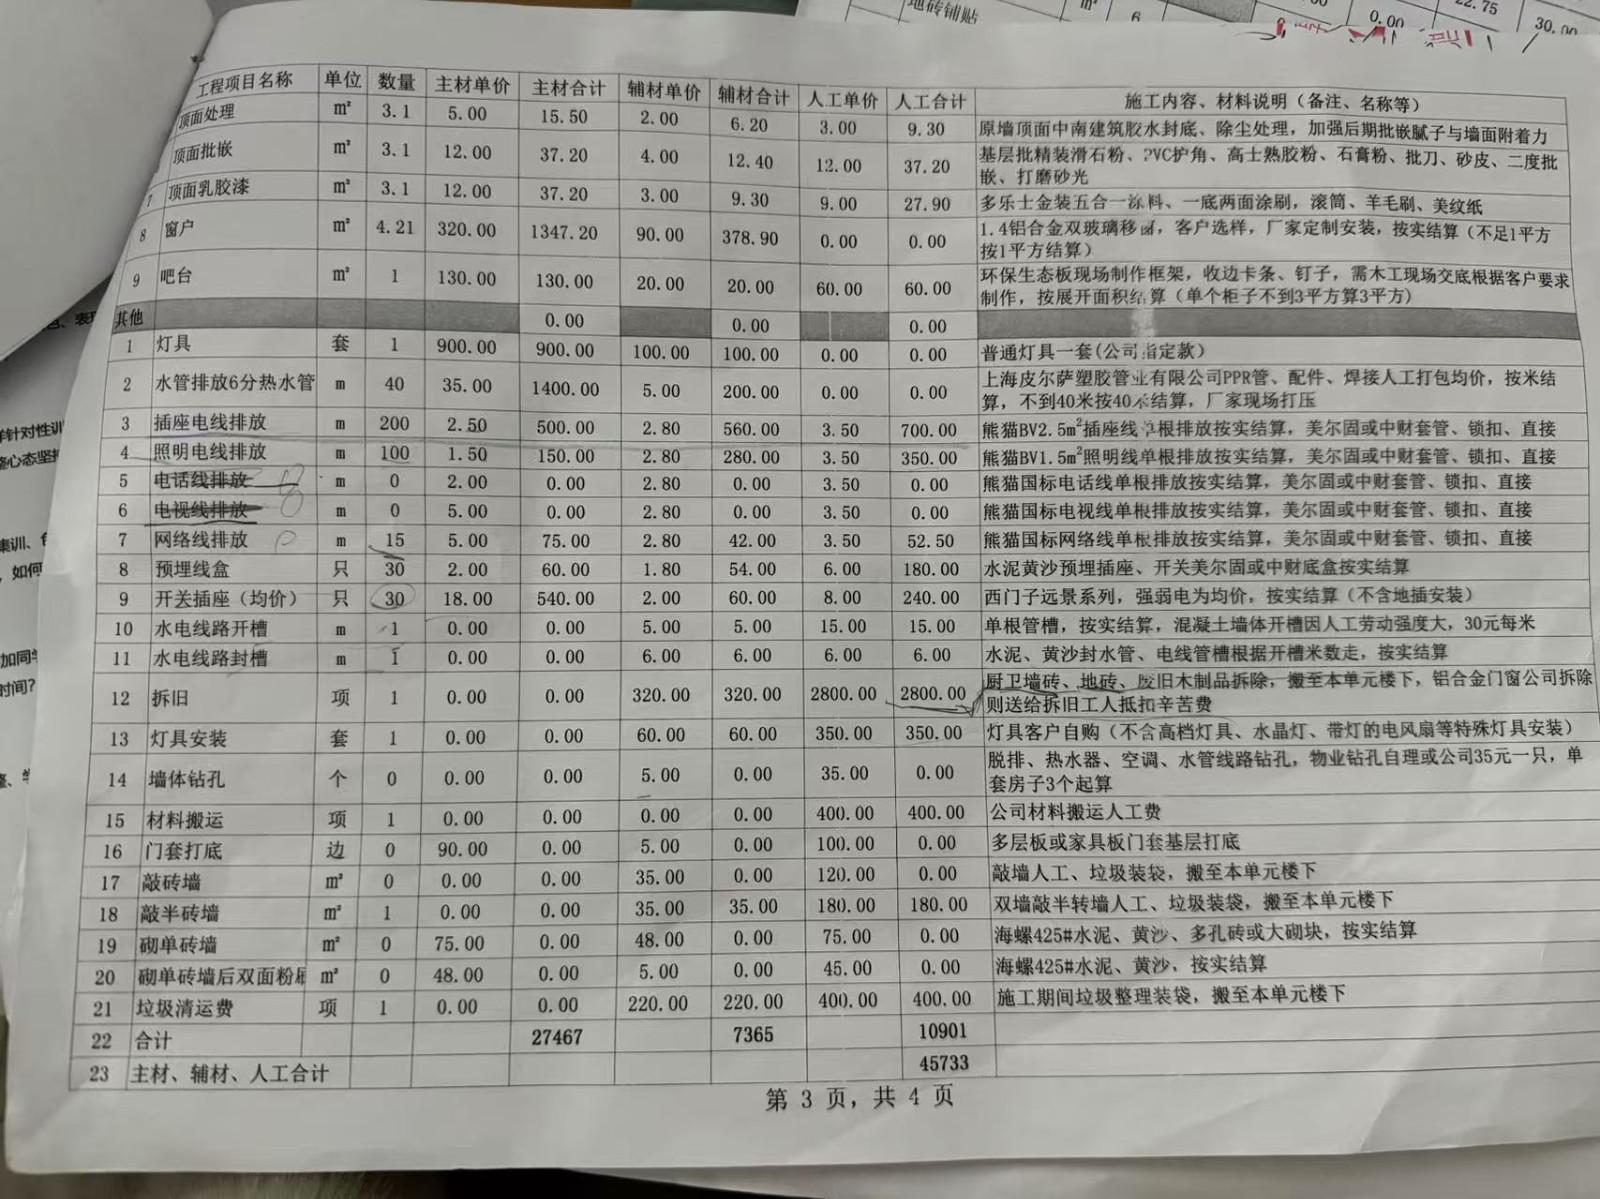 地砖铺贴 m² 6 0.00 22.75 30.00
工程项目名称 单位 数量 主材单价 主材合计 辅材单价 辅材合计 人工单价 人工合计 施工内容、材料说明（备注、名称等）
顶面处理 m² 3.1 5.00 15.50 2.00 6.20 3.00 9.30 原墙顶面中南建筑胶水封底、除尘处理，加强后期批嵌腻子与墙面附着力
顶面批嵌 m² 3.1 12.00 37.20 4.00 12.40 12.00 37.20 基层批精装滑石粉、PVC护角、高士熟胶粉、石膏粉、批刀、砂皮、二度批
嵌、打磨砂光
7 顶面乳胶漆 m² 3.1 12.00 37.20 3.00 9.30 9.00 27.90 多乐士金装五合一涂料、一底两面涂刷，滚筒、羊毛刷、美纹纸
8 窗户 m² 4.21 320.00 1347.20 90.00 378.90 0.00 0.00 1.4铝合金双玻璃移窗，客户选样，厂家定制安装，按实结算（不足1平方
按1平方结算）
9 吧台 m² 1 130.00 130.00 20.00 20.00 60.00 60.00 环保生态板现场制作框架，收边卡条、钉子，需木工现场交底根据客户要求
制作，按展开面积结算（单个柜子不到3平方算3平方)
其他 0.00 0.00 0.00
1 灯具 套 1 900.00 900.00 100.00 100.00 0.00 0.00 普通灯具一套(公司指定款）
2 水管排放6分热水管 m 40 35.00 1400.00 5.00 200.00 0.00 0.00 上海皮尔萨塑胶管业有限公司PPR管、配件、焊接人工打包均价，按米结
算，不到40米按40米结算，厂家现场打压
3 插座电线排放 m 200 2.50 500.00 2.80 560.00 3.50 700.00 熊猫BV2.5m²插座线单根排放按实结算，美尔固或中财套管、锁扣、直接
4 照明电线排放 m 100 1.50 150.00 2.80 280.00 3.50 350.00 熊猫BV1.5m²照明线单根排放按实结算，美尔固或中财套管、锁扣、直接
5 电话线排放 m 0 2.00 0.00 2.80 0.00 3.50 0.00 熊猫国标电话线单根排放按实结算，美尔固或中财套管、锁扣、直接
6 电视线排放 m 0 5.00 0.00 2.80 0.00 3.50 0.00 熊猫国标电视线单根排放按实结算，美尔固或中财套管、锁扣、直接
7 网络线排放 m 15 5.00 75.00 2.80 42.00 3.50 52.50 熊猫国标网络线单根排放按实结算，美尔固或中财套管、锁扣、直接
8 预埋线盒 只 30 2.00 60.00 1.80 54.00 6.00 180.00 水泥黄沙预埋插座、开关美尔固或中财底盒按实结算
9 开关插座（均价） 只 30 18.00 540.00 2.00 60.00 8.00 240.00 西门子远景系列，强弱电为均价，按实结算（不含地插安装）
10 水电线路开槽 m 1 0.00 0.00 5.00 5.00 15.00 15.00 单根管槽，按实结算，混凝土墙体开槽因人工劳动强度大，30元每米
11 水电线路封槽 m 1 0.00 0.00 6.00 6.00 6.00 6.00 水泥、黄沙封水管、电线管槽根据开槽米数走，按实结算
12 拆旧 项 1 0.00 0.00 320.00 320.00 2800.00 2800.00 厨卫墙砖、地砖、废旧木制品拆除，搬至本单元楼下，铝合金门窗公司拆除
则送给拆旧工人抵扣辛苦费
13 灯具安装 套 1 0.00 0.00 60.00 60.00 350.00 350.00 灯具客户自购（不含高档灯具、水晶灯、带灯的电风扇等特殊灯具安装）
14 墙体钻孔 个 0 0.00 0.00 5.00 0.00 35.00 0.00 脱排、热水器、空调、水管线路钻孔，物业钻孔自理或公司35元一只，单
套房子3个起算
15 材料搬运 项 1 0.00 0.00 0.00 0.00 400.00 400.00 公司材料搬运人工费
16 门套打底 边 0 90.00 0.00 5.00 0.00 100.00 0.00 多层板或家具板门套基层打底
17 敲砖墙 m² 0 0.00 0.00 35.00 0.00 120.00 0.00 敲墙人工、垃圾装袋，搬至本单元楼下
18 敲半砖墙 m² 1 0.00 0.00 35.00 35.00 180.00 180.00 双墙敲半转墙人工、垃圾装袋，搬至本单元楼下
19 砌单砖墙 m² 0 75.00 0.00 48.00 0.00 75.00 0.00 海螺425#水泥、黄沙、多孔砖或大砌块，按实结算
20 砌单砖墙后双面粉刷 m² 0 48.00 0.00 5.00 0.00 45.00 0.00 海螺425#水泥、黄沙，按实结算
21 垃圾清运费 项 1 0.00 0.00 220.00 220.00 400.00 400.00 施工期间垃圾整理装袋，搬至本单元楼下
22 合计 27467 7365 10901
23 主材、辅材、人工合计 45733
第 3 页，共 4 页